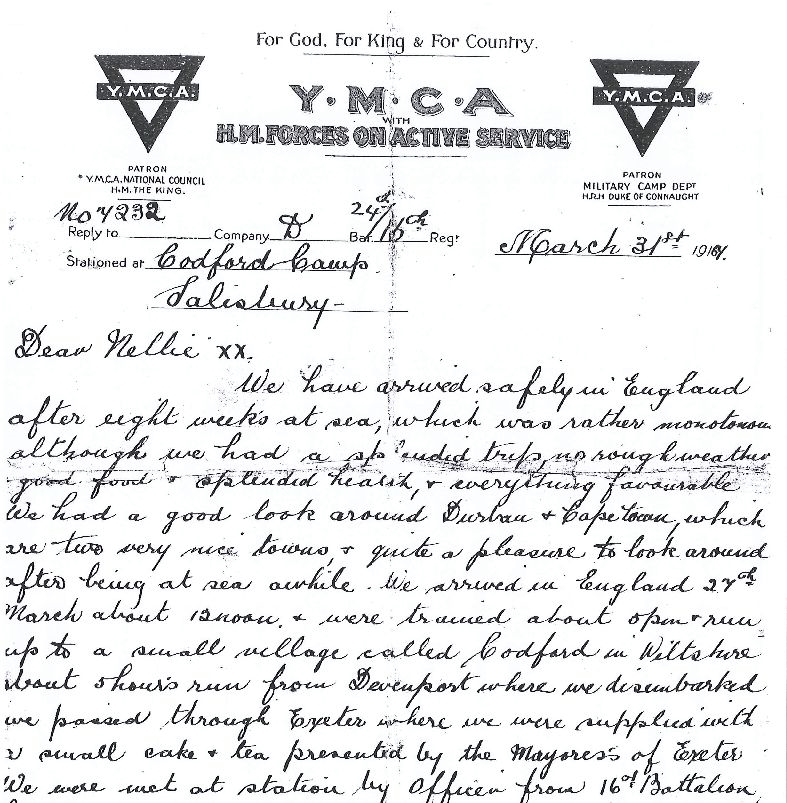 For God, For King & For Country.
Y.M.C.A.
Y.M.C.A
WITH
H.M. FORCES ON ACTIVE SERVICE
Y.M.C.A.
PATRON
Y.M.C.A. NATIONAL COUNCIL
H.M. THE KING.
PATRON
MILITARY CAMP DEPT
H.R.H DUKE OF CONNAUGHT
No 7232 24th/
Reply to Company D Bat. 16th Regt
March 31st 191
Stationed at Codford Camp.
Salisbury-
Dear Nellie xx.
We have arrived safely in England
after eight weeks at sea, which was rather monotonous
although we had a splendid trip, no rough weather
good food & splendid health, & everything favourable
We had a good look around Durban & Cape Town, which
are two very nice towns, & quite a pleasure to look around
after being at sea awhile. We arrived in England 27th
March about 12 noon, & were trained about & run
up to a small village called Codford in Wiltshire
about 5 hours run from Devenport where we disembarked
we passed through Exeter where we were supplied with
a small cake & tea presented by the Mayoress of Exeter
We were met at station by Officer from 16th Battalion,